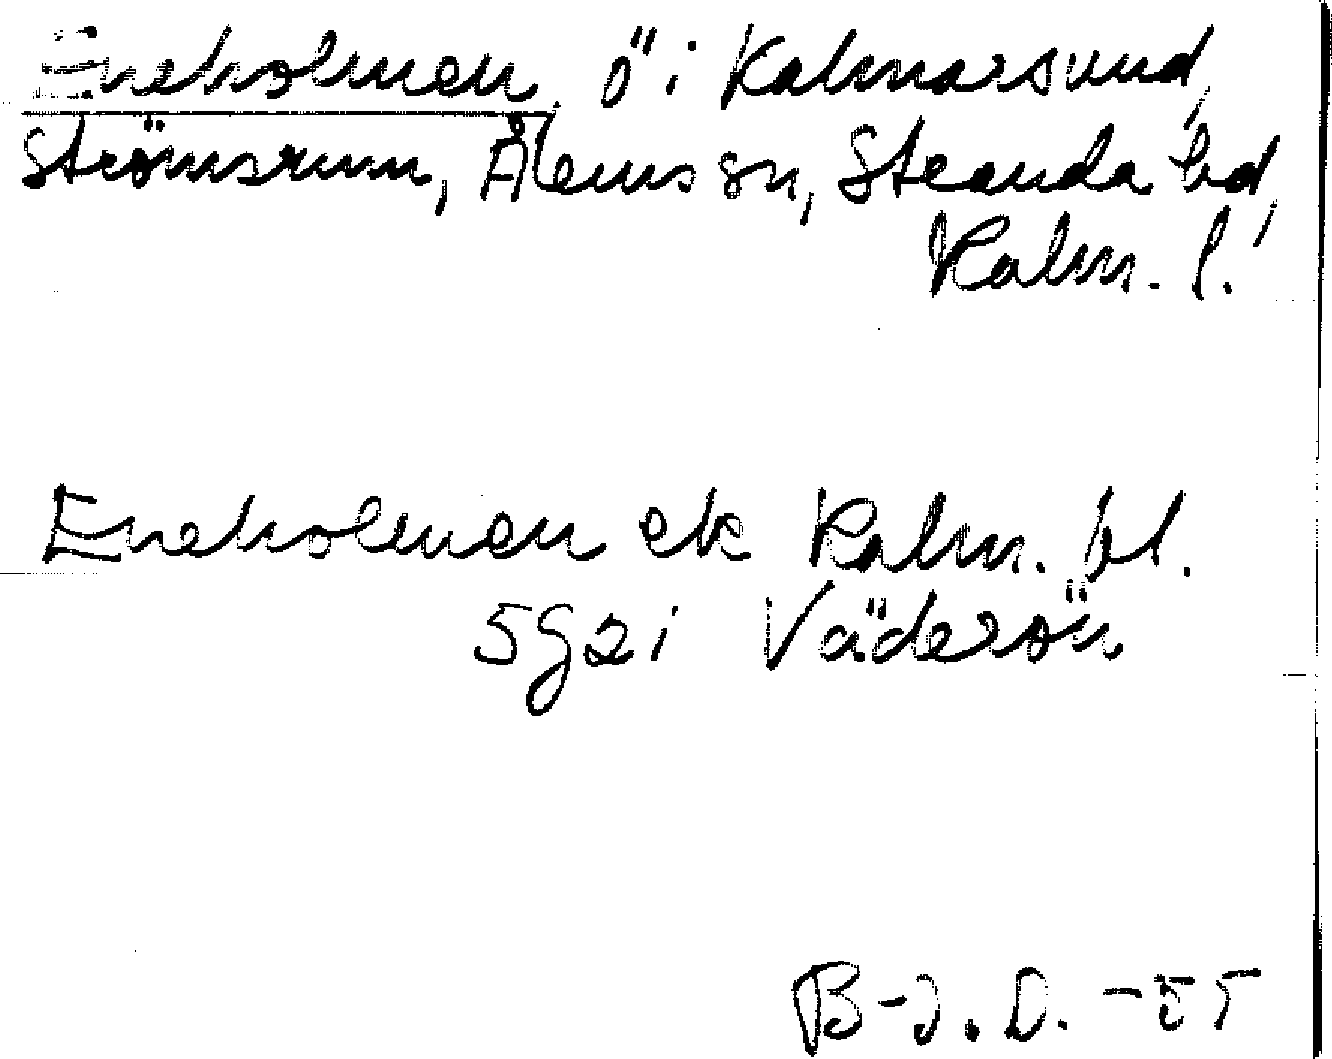 Eneholmen, ö i Kalmarsund,
Strömsrum, Ålems sn, Stranda hd,
Kalm. l.
Eneholmen ek Kalm. bl.
5g2i Väderön
B-J. D. -55